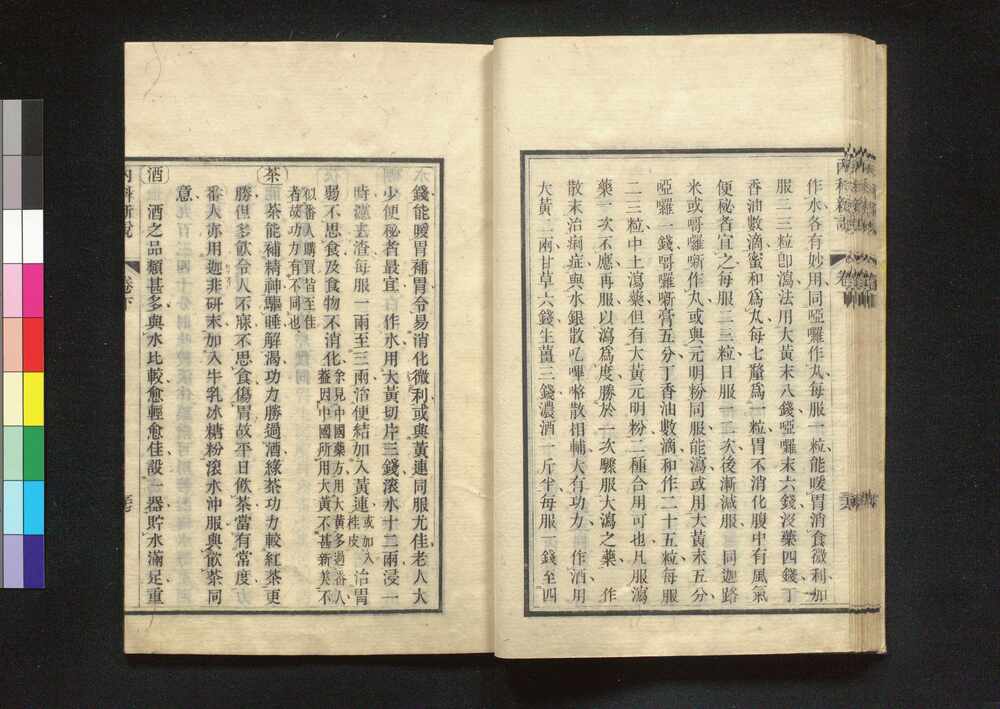 作水各有妙用同啞囉作丸每服一粒能暖胃消食微利加
服二三粒卽瀉法用大黃末八錢啞囉末六錢沒藥四錢丁
香油數滴蜜和爲丸每七釐爲一粒胃不消化腹中有風氣
便秘者宜之每服二三粒日服一二次後漸減服 同迦路
米或哥囉噺作丸或與元明粉同服能瀉或用大黃末五分
啞囉一錢哥囉噺膏五分丁香油數滴和作二十五粒每服
二三粒中土瀉藥但有大黃元明粉二種合用可也凡服瀉
藥一次不應再服以瀉爲度勝於一次驟服大瀉之藥 作
散末治痢症與水銀散叱嗶格散相輔大有功力 作酒用
大黃二兩甘草六錢生薑三錢濃酒一斤半每服一錢至四
錢能暖胃補胃令易消化微利或與黃連同服尤佳老人大
少便秘者最宜 作水用大黃切片三錢滾水十二兩浸一
時濾去渣每服一兩至三兩治便結加入黃連或加入桂皮治胃
弱不思食及食物不消化余見中國藥方用大黃多過番人蓋因中國所用大黃不甚新美不
似番人購買皆至佳者故功力有不同也
茶 茶能補精神驅睡解渴功力勝過酒綠茶功力較紅茶更
勝但多飲令人不寐不思食傷胃故平日飲茶當有常度
番人亦用迦非研末加入牛乳冰糖粉滾水沖服與飲茶同
意
酒 酒之品類甚多與水比較愈輕愈佳設一器貯水滿足重
內科新說 卷下